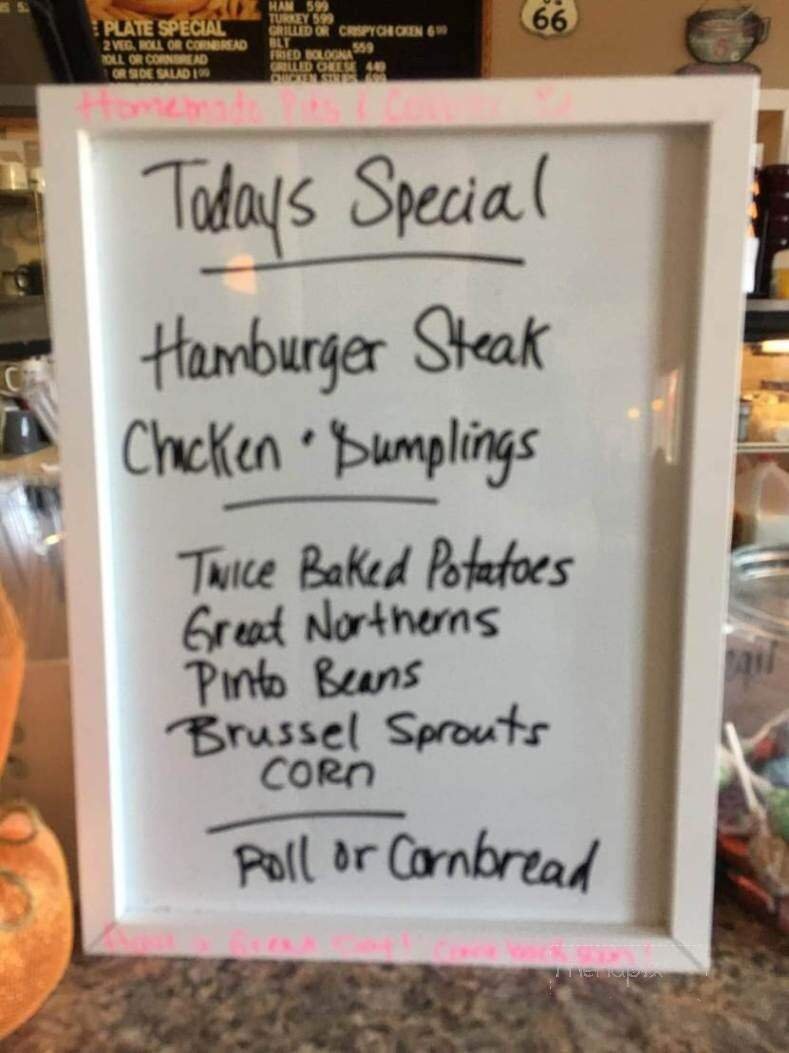 PLATE SPECIAL
2 VEG, ROLL OR CORNBREAD
ROLL OR CORNBREAD
OR SIDE SALAD 1 00
HAM 5 99
TURKEY 5 99
GRILLED OR CRISPY CHICKEN 6
BLT
FRIED BOLOGNA 5 59
GRILLED CHEESE 4 49
CHICKEN STRIPS 6 99
66
Homemade Pies &
Todays Special
Hamburger Steak
Chicken • Dumplings
Twice Baked Potatoes
Great Northerns
Pinto Beans
Brussel Sprouts
CORn
Roll or Cornbread
Have a Great Day! Come back soon!
menupix